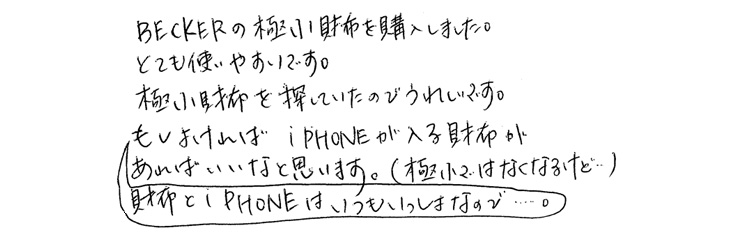 BECKERの極小財布を購入しました。
とても使いやすいです。
極小財布を探していたのでうれしいです。
もしよければ iPHONEが入る財布が
あればいいなと思います。(極小ではなくなるけど…)
財布とiPHONEはいつもいっしょなので……。